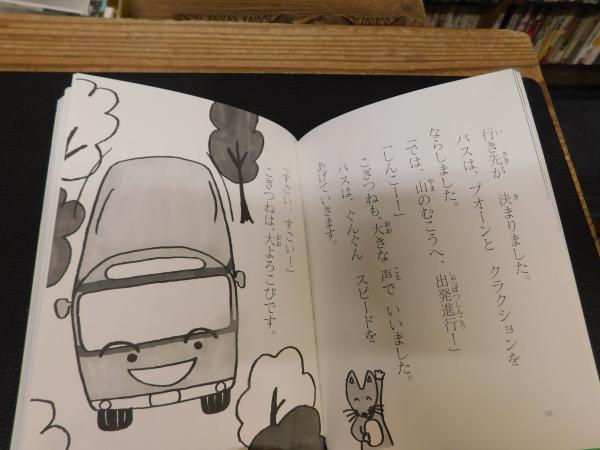 行き先が　決まりました。
バスは、プオーンと　クラクションを
ならしました。
「では、山のむこうへ、出発進行！」
「しんこー！」
こぎつねも、大きな　声で　いいました。
バスは、ぐんぐん　スピードを
あげていきます。
「すごい、すごい！」
こぎつねは、大よろこびです。